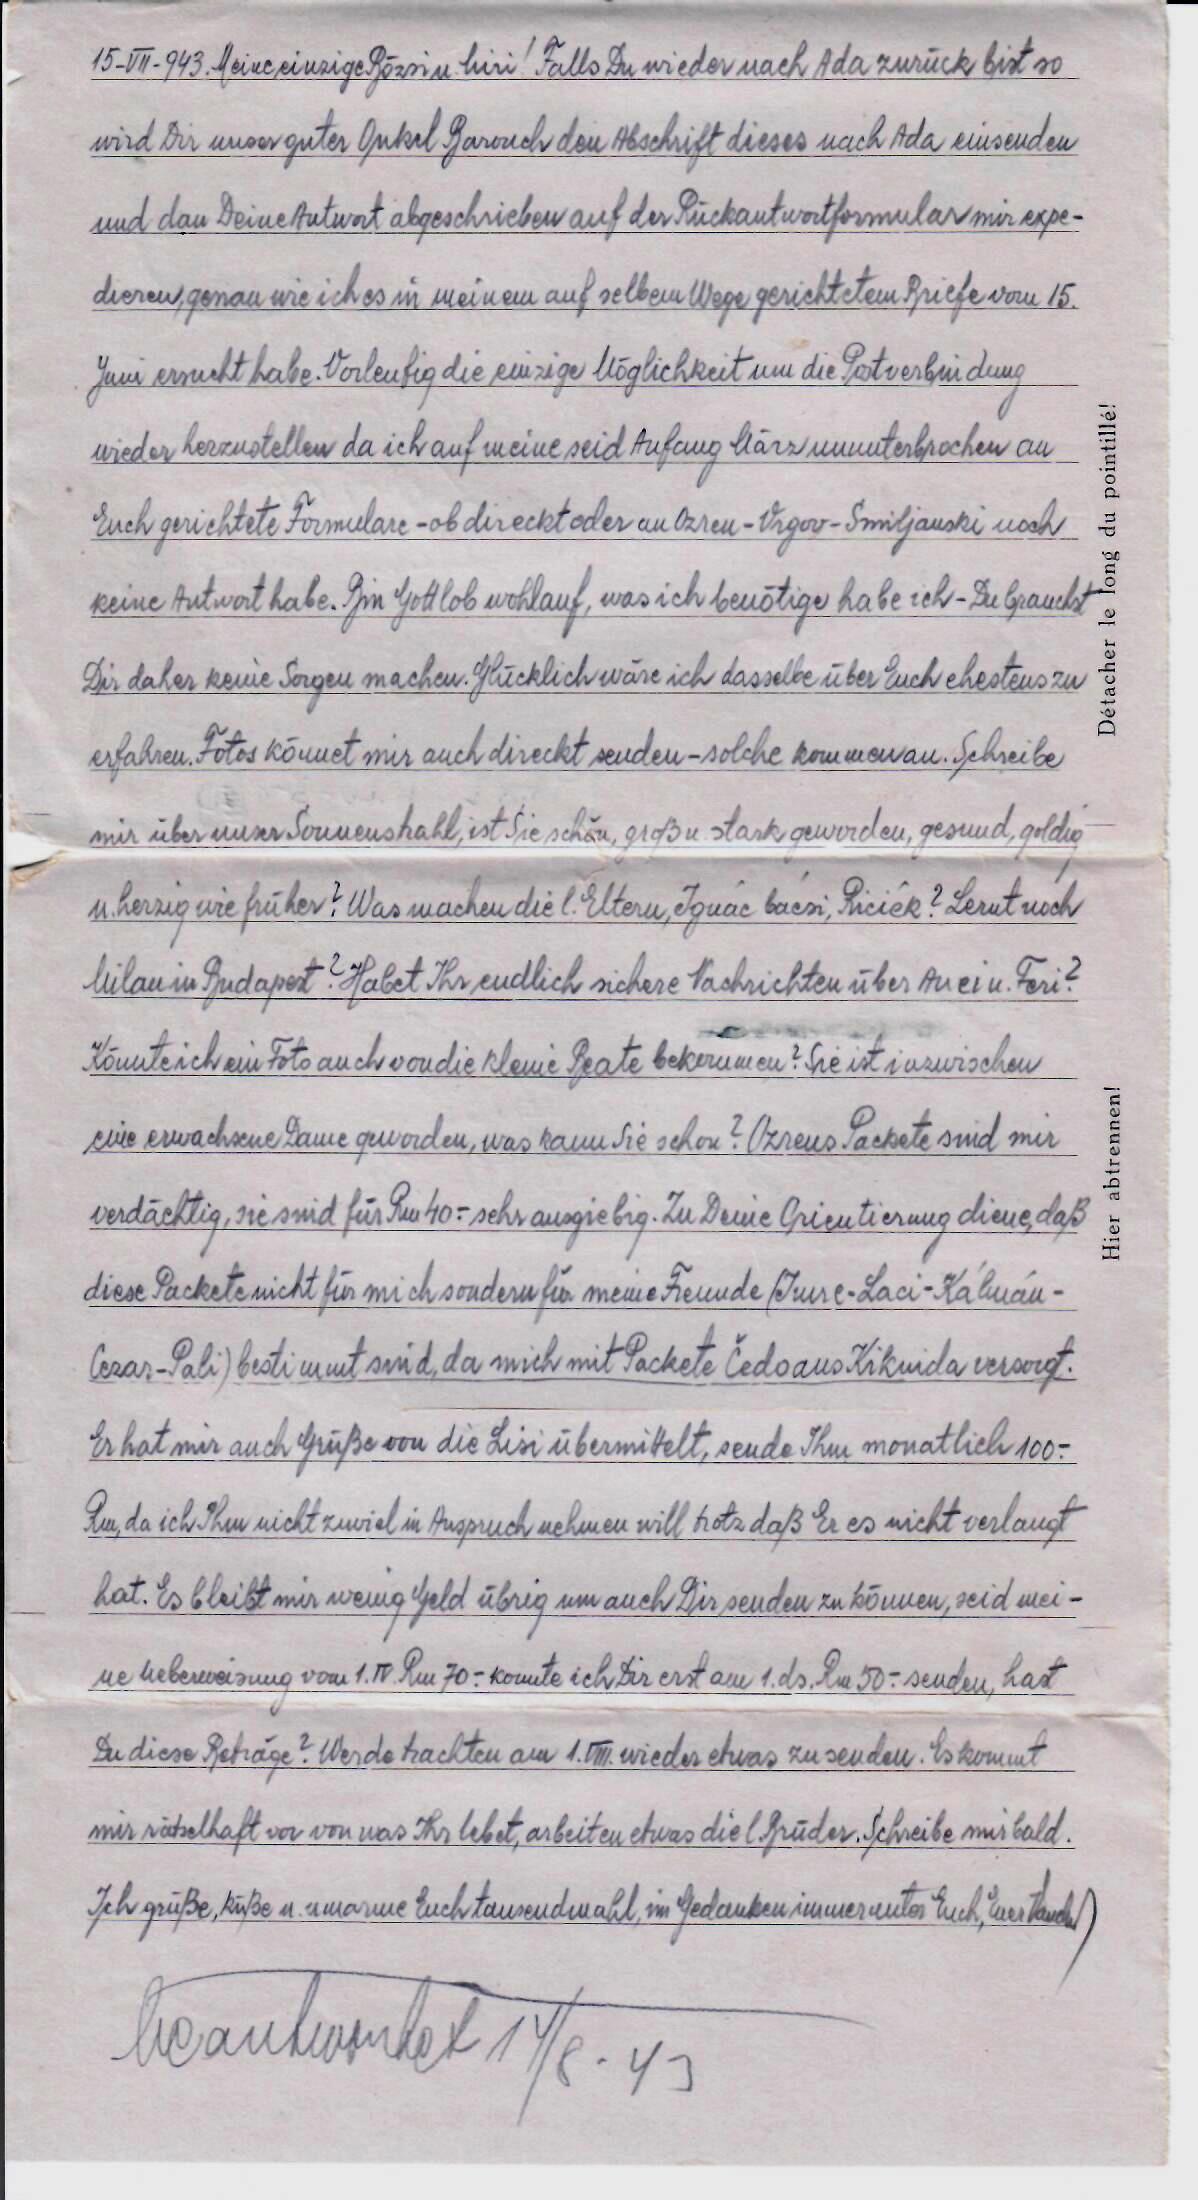 15-VII-943. Meine einzige Rózsi u. hiri! Falls Du wieder nach Ada zurück bist so
wird Dir unser guter Onkel Barouch den Abschrift dieses nach Ada einsenden
und dan Deine Antwort abgeschrieben auf der Rückantwortformular mir expe-
dieren, genau wie ich es in meinem auf selbem Wege gerichtetem Briefe vom 15.
Juni ersucht habe. Vorleufig die einzige Möglichkeit um die Postverbindung
wieder herzustellen da ich auf meine seid Anfang März ununterbrochen an
Euch gerichtete Formulare - ob direckt oder an Ozren - Vrgov - Smiljanski noch
keine Antwort habe. Bin Gottlob wohlauf, was ich benötige habe ich - Du brauchst
Dir daher keine Sorgen machen. Glücklich wäre ich dasselbe über Euch ehestens zu
erfahren. Fotos könnet mir auch direckt senden - solche kommen an. Schreibe
mir über unser Sonnenstrahl, ist Sie schön, groß u. stark geworden, gesund, goldig
u. herzig wie früher? Was machen die l. Eltern, Ignác bácsi, Riciék? Lernt noch
Milan in Budapest? Habet Ihr endlich sichere Nachrichten über Anci u. Feri?
Könnte ich ein Foto auch von die kleine Beate bekommen? Sie ist inzwischen
eine erwachsene Dame geworden, was kann Sie schon? Ozrens Packete sind mir
verdächtig, sie sind für Rm 40.- sehr ausgiebig. Zu Deine Orientierung diene, daß
diese Packete nicht für mich sondern für meine Freunde (Imre - Laci - Kálmán -
Cezar - Pali) bestimmt sind, da mich mit Packete Čedo aus Kikinda versorgt.
Er hat mir auch Grüße von die Lisi übermittelt, sende Ihm monatlich 100.-
Rm, da ich Ihm nicht zuviel in Anspruch nehmen will trotz daß Er es nicht verlangt
hat. Es bleibt mir wenig Geld übrig um auch Dir senden zu können, seid mei-
ne Ueberweisung vom 1. IV. Rm 70.- konnte ich Dir erst am 1. ds. Rm 50.- senden, hast
Du diese Beträge? Werde trachten am 1. VIII. wieder etwas zu senden. Es kommt
mir rätselhaft vor von was Ihr lebet, arbeiten etwas die l. Brüder. Schreibe mir bald.
Ich grüße, küße u. umarme Euch tausendmahl, im Gedanken immer unter Euch, Euer
Beantwortet 14/8 - 43
Détacher le long du pointillé!
Hier abtrennen!